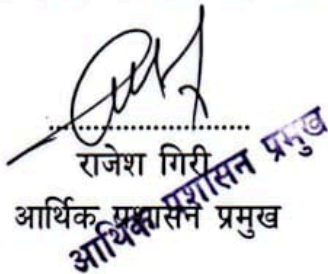 राजेश गिरी
आर्थिक प्रशासन प्रमुख
आर्थिक प्रशासन प्रमुख